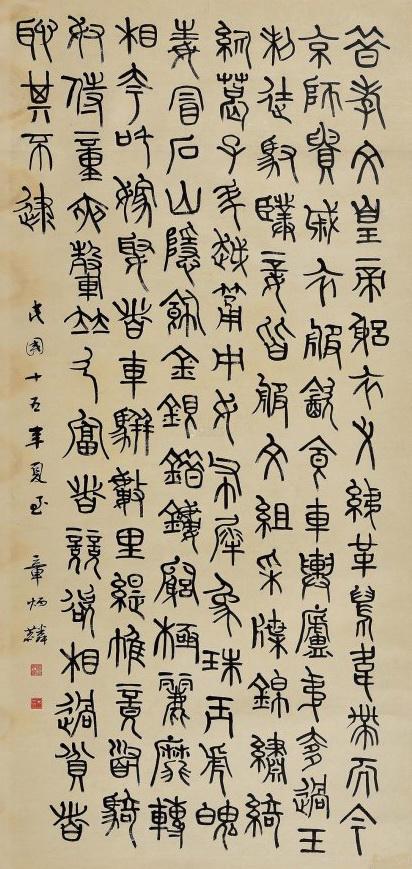 昔孝文皇帝躬衣弋綈革舄韋帶而今
京師貴戚衣服飲食車輿廬弟奢過王
制徒馭僕妾皆服文組采牒錦繡綺
紈葛子升越筩中女布犀象珠玉虎魄
毒冒石山隱飾金銀錯鏤窮極麗靡轉
相夸吒嫁娶者車軿數里緹帷竟道騎
奴侍童夾轂並引富者競欲相過貧者
恥其不逮
民國十五年夏至 章炳麟